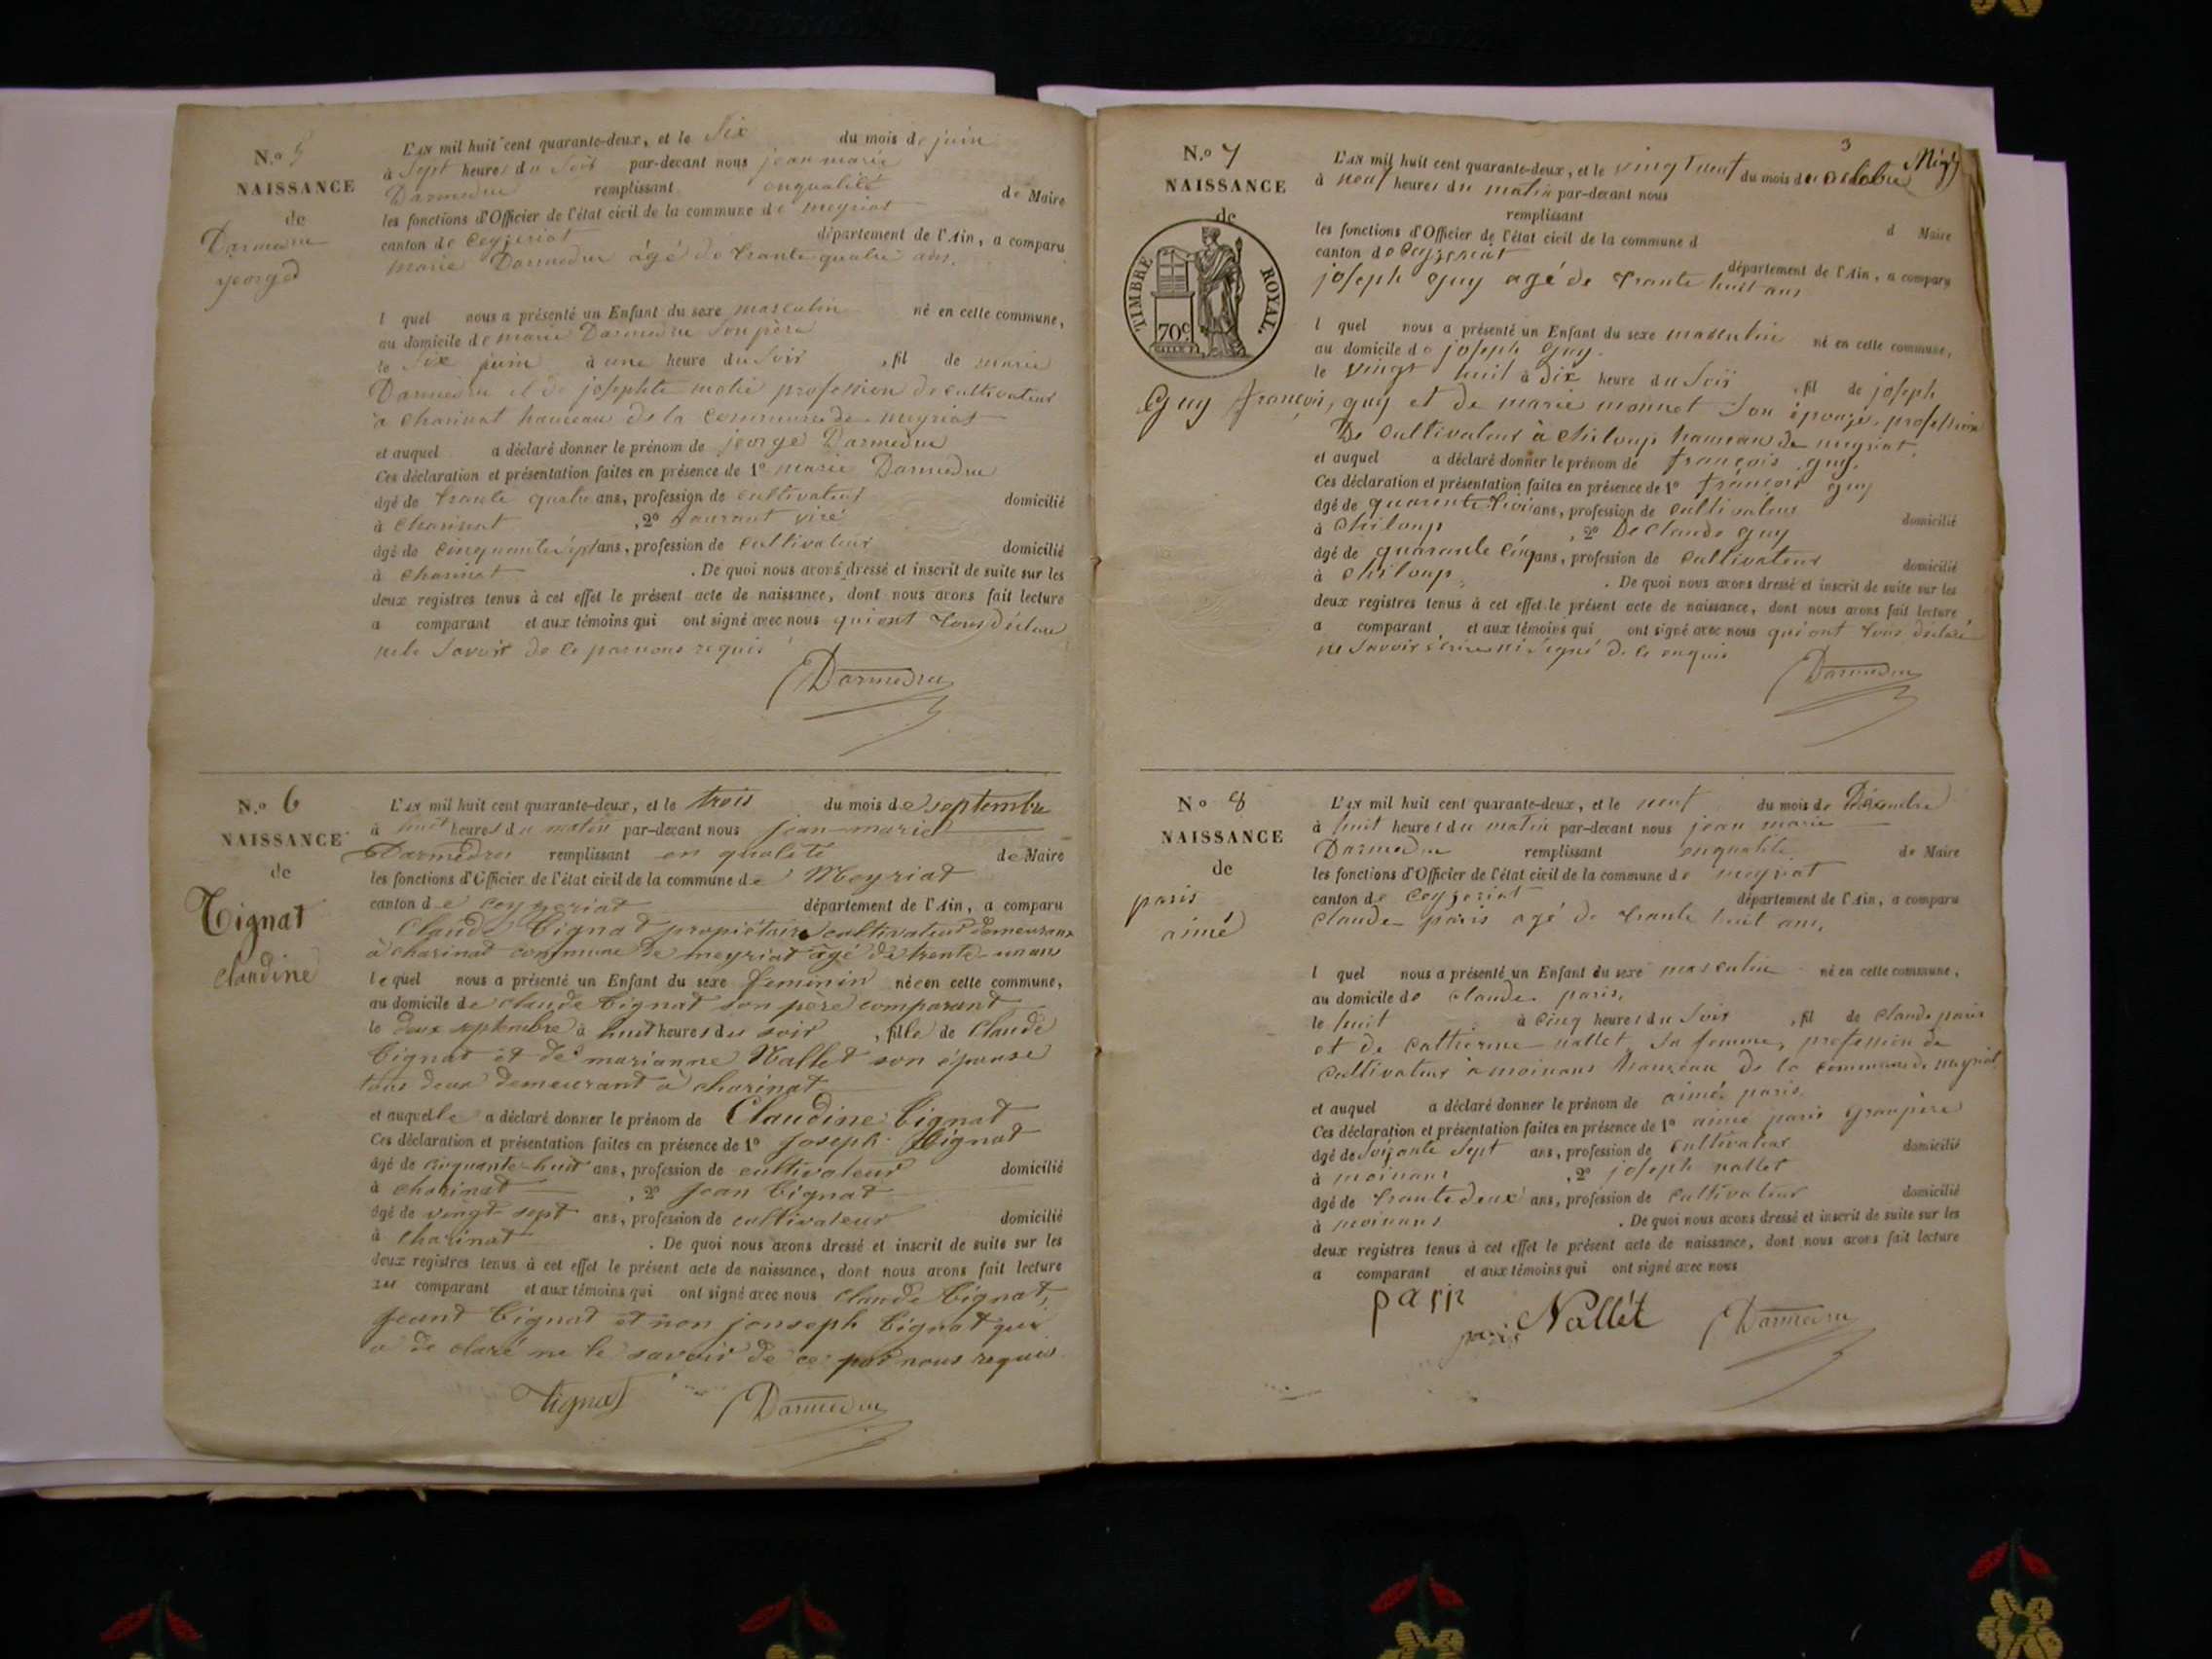 N.º 5
NAISSANCE
de
Darmedru
george
L'AN mil huit cent quarante-deux, et le Six du mois de juin
à Sept heures du Soir par-devant nous jean marie
Darmedru remplissant enqualité de Maire
les fonctions d'Officier de l'état civil de la commune de meyriat
canton de Ceyzeriat département de l'Ain, a comparu
marie Darmedru âgé de trante quatre ans.
l quel nous a présenté un Enfant du sexe masculin né en cette commune,
au domicile de marie Darmedru Son père
le Six juin à une heure du Soir , fil de marie
Darmedru et de josephte profession de cultivateur
à Charinat hameau de la Commune de meyriat
et auquel a déclaré donner le prénom de jeorge Darmedru
Ces déclaration et présentation faites en présence de 1º marie Darmedru
âgé de trante quatre ans, profession de cultivateur domicilié
à Charinat , 2º
âgé de Cinquante sept ans, profession de Cultivateur domicilié
à Charinat . De quoi nous avons dressé et inscrit de suite sur les
deux registres tenus à cet effet le présent acte de naissance, dont nous avons fait lecture
a comparant et aux témoins qui ont signé avec nous qui ont tous déclaré
ne le Savoir de ce par nous requis
Darmedru
N.º 6
NAISSANCE
de
Tignat
Claudine
L'AN mil huit cent quarante-deux, et le trois du mois de septembre
à huit heures du matin par-devant nous jean-marie
Darmedru remplissant en qualité de Maire
les fonctions d'Officier de l'état civil de la commune de Meyriat
canton de ceyzeriat département de l'Ain, a comparu
Claude Tignat propriétaire cultivateur demeurant
à charinat commune de meyriat âgé de trente-un ans
lequel nous a présenté un Enfant du sexe feminin née en cette commune,
au domicile de claude tignat son père comparant
le deux septembre à huit heures du soir , fille de Claude
tignat et de marianne Nallet son épouse
tous deux demeurant à charinat
et auquelle a déclaré donner le prénom de Claudine tignat
Ces déclaration et présentation faites en présence de 1º Joseph tignat
âgé de cinquante-huit ans, profession de cultivateur domicilié
à charinat , 2º Jean tignat
âgé de vingt-sept ans, profession de cultivateur domicilié
à charinat . De quoi nous avons dressé et inscrit de suite sur les
deux registres tenus à cet effet le présent acte de naissance, dont nous avons fait lecture
au comparant et aux témoins qui ont signé avec nous Claude tignat,
jeant tignat et non jonseph tignat qui
a de claré ne le savoir de ce par nous requis
tignat Darmedru
3
N.º 7
NAISSANCE
de
TIMBRE ROYAL.
70c
Guy françois,
L'AN mil huit cent quarante-deux, et le vingt neuf du mois de octobre
à neuf heures du matin par-devant nous
remplissant
les fonctions d'Officier de l'état civil de la commune d d Maire
canton de Ceyzeriat département de l'Ain, a comparu
joseph guy agé de trante huit ans
l quel nous a présenté un Enfant du sexe masculin né en cette commune,
au domicile de joseph Guy.
le vingt huit à Dix heure du Soir , fil de joseph
guy et de marie monnet Son épouze, profession
De Cultivateur à Chiloup hameau de meyriat.
et auquel a déclaré donner le prénom de françois guy.
Ces déclaration et présentation faites en présence de 1º françois guy
âgé de quarente trois ans, profession de Cultivateur domicilié
à Chiloup , 2º De Claude Guy
âgé de quarante Cinq ans, profession de Cultivateur domicilié
à Chiloup . De quoi nous avons dressé et inscrit de suite sur les
deux registres tenus à cet effet le présent acte de naissance, dont nous avons fait lecture
a comparant et aux témoins qui ont signé avec nous qui ont tous déclaré
ne Savoir écrire ni Signé de ce enquis
Darmedru
Nº 8
NAISSANCE
de
paris
aimé
L'AN mil huit cent quarante-deux, et le neuf du mois de Décembre
à huit heures du matin par-devant nous jean marie
Darmedru remplissant enqualité de Maire
les fonctions d'Officier de l'état civil de la commune de meyriat
canton de Ceyzeriat département de l'Ain, a comparu
Claude paris agé de trante huit ans,
l quel nous a présenté un Enfant du sexe masculin né en cette commune,
au domicile de Claude paris,
le huit à Cinq heures du Soir , fil de Claude paris
et de Catherine nallet sa femme, profession de
Cultivateur à moinans hameau de la Commune de meyriat
et auquel a déclaré donner le prénom de aimé paris
Ces déclaration et présentation faites en présence de 1º aimé paris granpère
âgé de Soixante Sept ans, profession de Cultivateur domicilié
à moinans , 2º joseph nallet
âgé de trante deux ans, profession de Cultivateur domicilié
à moinans . De quoi nous avons dressé et inscrit de suite sur les
deux registres tenus à cet effet le présent acte de naissance, dont nous avons fait lecture
a comparant et aux témoins qui ont signé avec nous
paris Nallét Darmedru
paris